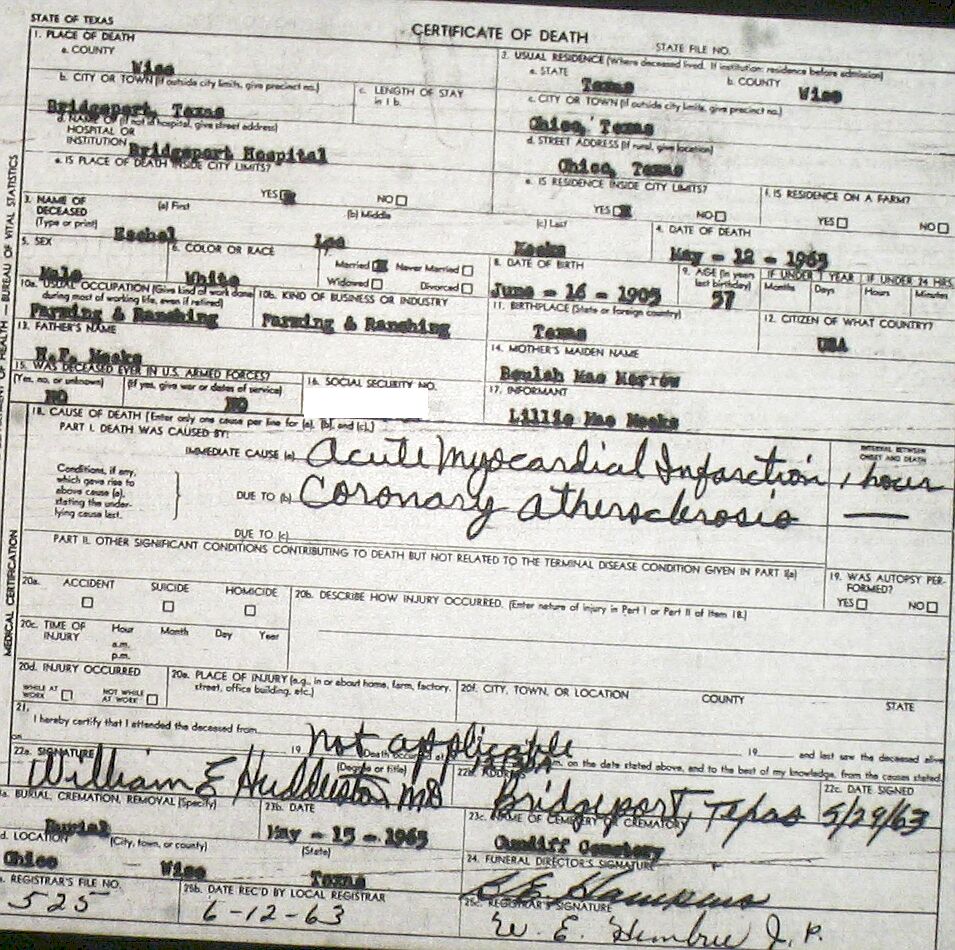 STATE OF TEXAS
CERTIFICATE OF DEATH
STATE FILE NO.
1. PLACE OF DEATH
a. COUNTY
Wise
2. USUAL RESIDENCE (Where deceased lived. If institution: residence before admission)
a. STATE
Texas
b. COUNTY
Wise
b. CITY OR TOWN (If outside city limits, give precinct no.)
Bridgeport, Texas
c. LENGTH OF STAY in 1 b.
c. CITY OR TOWN (If outside city limits, give precinct no.)
Chico, Texas
d. NAME OF (If not in hospital, give street address)
HOSPITAL OR
INSTITUTION
Bridgeport Hospital
d. STREET ADDRESS (If rural, give location)
Chico, Texas
e. IS PLACE OF DEATH INSIDE CITY LIMITS?
YES NO
e. IS RESIDENCE INSIDE CITY LIMITS?
YES NO
f. IS RESIDENCE ON A FARM?
YES NO
3. NAME OF DECEASED
(Type or print)
(a) First
(b) Middle
(c) Last
Lee
Meeks
4. DATE OF DEATH
May - 12 - 1963
5. SEX
Male
6. COLOR OR RACE
White
7.
Married Never Married
Widowed Divorced
8. DATE OF BIRTH
June - 16 - 1905
9. AGE (In years last birthday)
57
IF UNDER 1 YEAR
Months Days
IF UNDER 24 HRS.
Hours Minutes
10a. USUAL OCCUPATION (Give kind of work done
during most of working life, even if retired)
Farming & Ranching
10b. KIND OF BUSINESS OR INDUSTRY
Farming & Ranching
11. BIRTHPLACE (State or foreign country)
Texas
12. CITIZEN OF WHAT COUNTRY?
USA
13. FATHER'S NAME
Meeks
14. MOTHER'S MAIDEN NAME
Beulah Mae Morrow
15. WAS DECEASED EVER IN U.S. ARMED FORCES?
(Yes, no, or unknown)
(If yes, give war or dates of service)
NO
NO
16. SOCIAL SECURITY NO.
17. INFORMANT
Lillie Mae Meeks
18. CAUSE OF DEATH (Enter only one cause per line for (a), (b), and (c).)
PART I. DEATH WAS CAUSED BY:
INTERVAL BETWEEN
ONSET AND DEATH
IMMEDIATE CAUSE (a) Acute Myocardial Infarction 1 hour
Conditions, if any,
which gave rise to
above cause (a),
stating the under-
lying cause last.
DUE TO (b) Coronary athersclerosis —
DUE TO (c)
PART II. OTHER SIGNIFICANT CONDITIONS CONTRIBUTING TO DEATH BUT NOT RELATED TO THE TERMINAL DISEASE CONDITION GIVEN IN PART I(a)
19. WAS AUTOPSY PER-
FORMED?
YES NO
MEDICAL CERTIFICATION
BUREAU OF VITAL STATISTICS
20a. ACCIDENT SUICIDE HOMICIDE
20b. DESCRIBE HOW INJURY OCCURRED. (Enter nature of injury in Part I or Part II of item 18.)
20c. TIME OF INJURY
Hour Month Day Year
a.m.
p.m.
20d. INJURY OCCURRED
WHILE AT WORK NOT WHILE AT WORK
20e. PLACE OF INJURY (e.g., in or about home, farm, factory,
street, office building, etc.)
20f. CITY, TOWN, OR LOCATION COUNTY STATE
21.
I hereby certify that I attended the deceased from
not applicable
on 19 Death occurred at m. on the date stated above, and to the best of my knowledge, from the causes stated.
19 and last saw the deceased alive
22a. SIGNATURE
(Degree or title)
William E Huddleston MD
22b. ADDRESS
Bridgeport, Texas
22c. DATE SIGNED
5/29/63
23a. BURIAL, CREMATION, REMOVAL (Specify)
Burial
23b. DATE
May - 15 - 1963
23c. NAME OF CEMETERY OR CREMATORY
Cundiff Cemetery
23d. LOCATION (City, town, or county) (State)
Chico Wise Texas
24. FUNERAL DIRECTOR'S SIGNATURE
25a. REGISTRAR'S FILE NO.
525
25b. DATE REC'D BY LOCAL REGISTRAR
6-12-63
25c. REGISTRAR'S SIGNATURE
W. E. J. P.